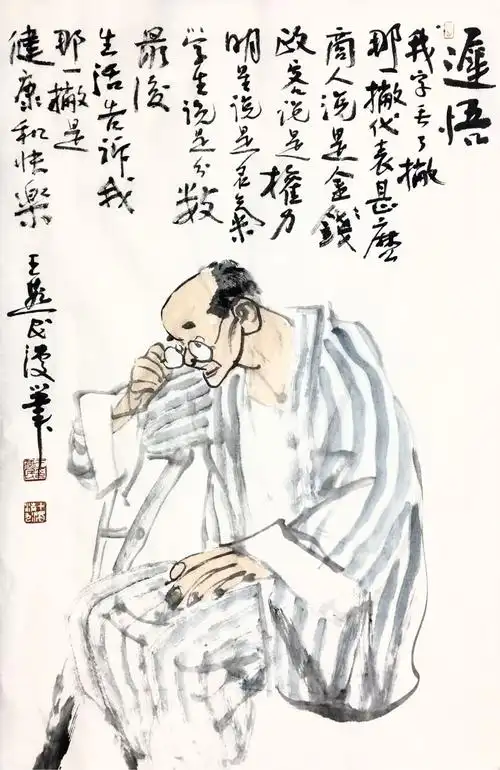 遲悟
我字丢了撇
那一撇代表甚麽
商人说是金錢
政客说是權力
明星说是名氣
学生说是分数
最後
生活告诉我
那一撇是
健康和快樂
王民漫筆